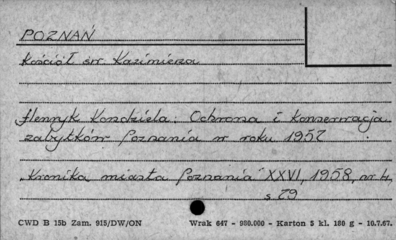 POZNAŃ
Kościół św. Kazimierza
Henryk Kondziela: Ochrona i konserwacja
zabytków Poznania w roku 1957
"Kronika miasta Poznania" XXVI, 1958, nr 4,
s 79
CWD B 15b Zam. 915/DW/ON Wrak 647 - 980.000 - Karton 5 kl. 180 g - 10.7.67.